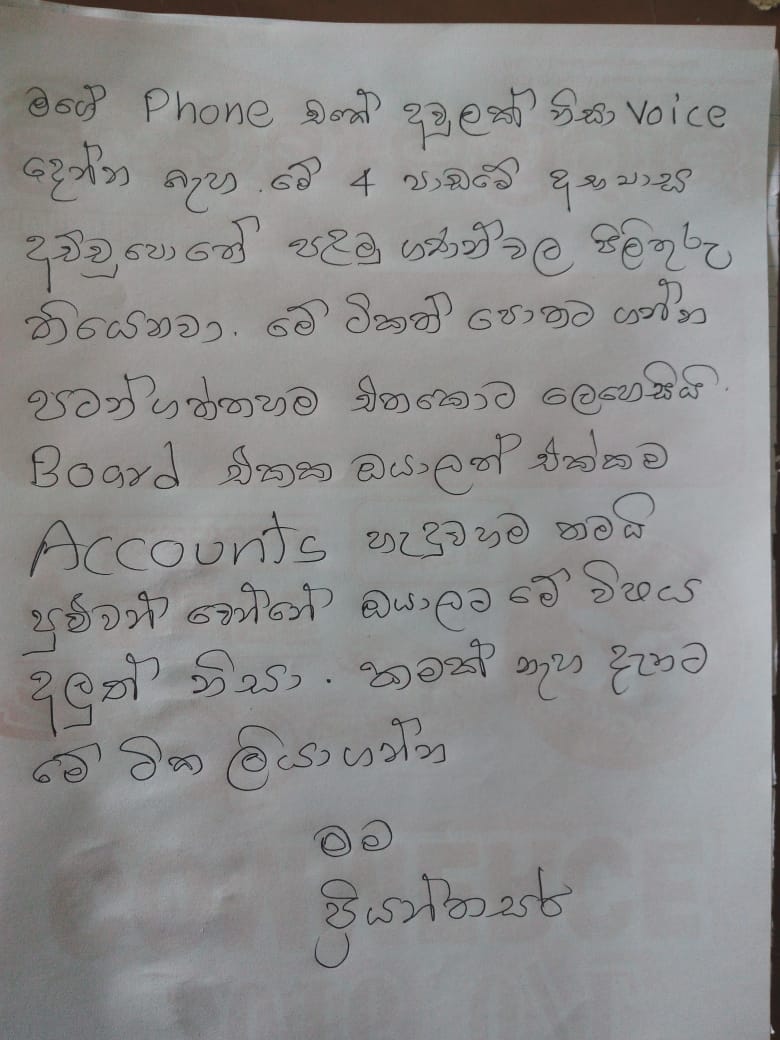 මගේ Phone එකේ අවුලක් නිසා voice
දෙන්න නැහ. මේ 4 පාඩමේ අභ්‍යාස
අච්චුපොතේ පළමු ගණන්වල පිලිතුරු
තියෙනවා. මේ ටිකත් පොතට ගන්න
පටන්ගත්තහම එතකොට ලෙහෙසියි.
Board එකක ඔයාලත් එක්කම
Accounts හැදුවහම තමයි
පුළුවන් වෙන්නේ ඔයාලට මේ විෂය
අලුත් නිසා. කමක් නැහ දැනට
මේ ටික ලියාගන්න
මම
ප්‍රියන්තසර්